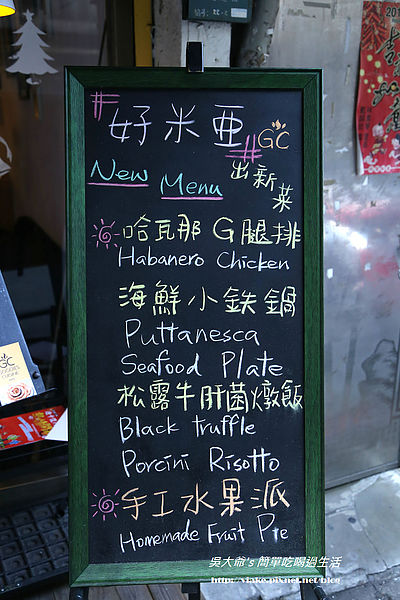 好米亜
GC
New Menu
出新菜
哈瓦那G腿排
Habanero Chicken
海鮮小鉄鍋
Puttanesca
Seafood Plate
松露牛肝菌燉飯
Black truffle
Porcini Risotto
手工水果派
Homemade Fruit Pie
GC
吳大爺's 簡單吃喝過生活
http://vjake.pixnet.net/blog